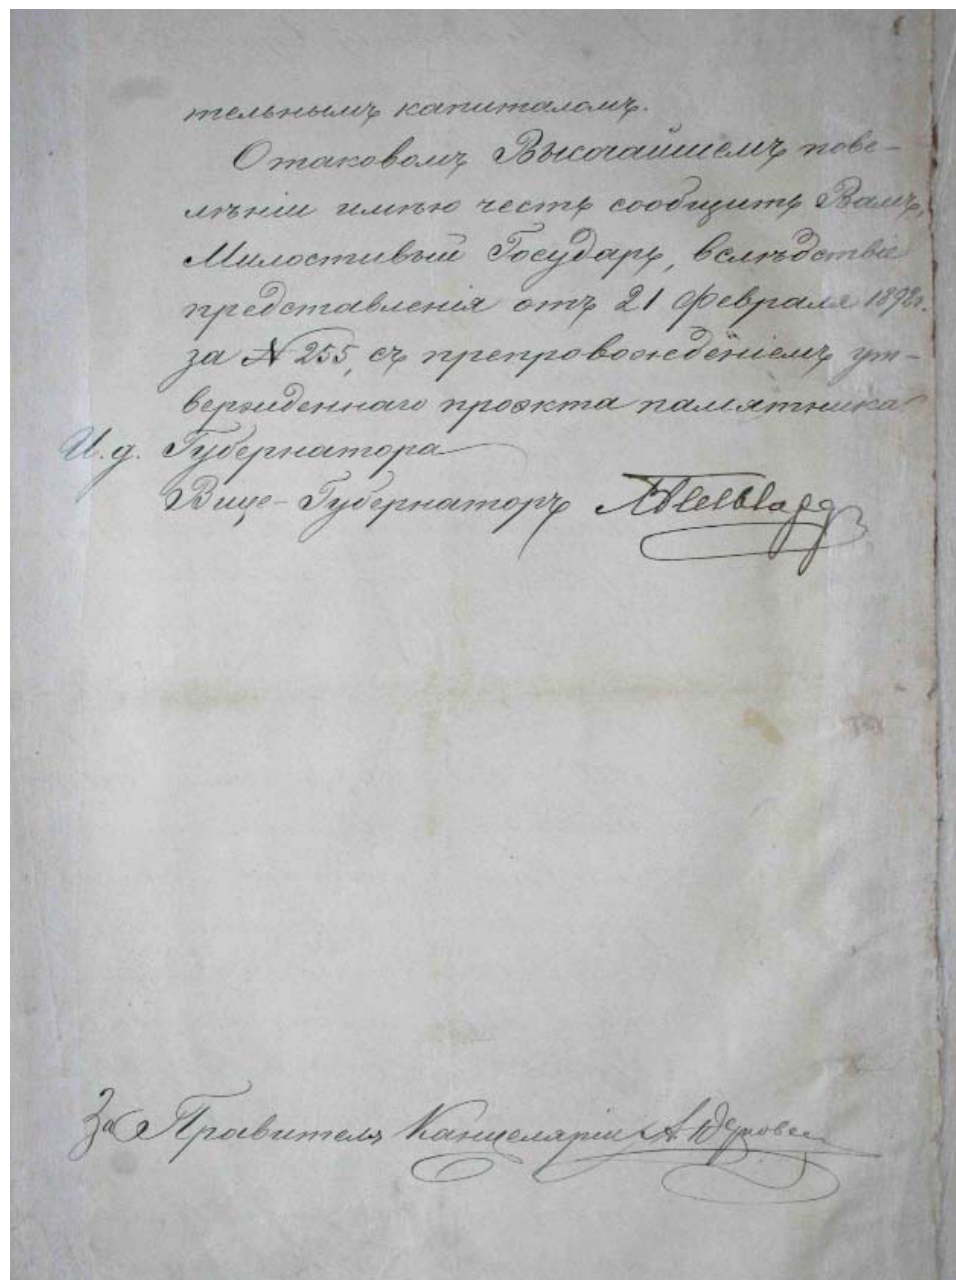 тельнымъ капиталомъ.
О таковомъ Высочайшемъ пове-
лѣніи имѣю честь сообщить Вамъ,
Милостивый Государь, вслѣдствіе
представленія отъ 21 Февраля 1892г.
за № 255, съ препровожденіемъ ут-
вержденнаго проэкта памятника
И. д. Губернатора
Вице-Губернаторъ
За Правителя Канцеляріи